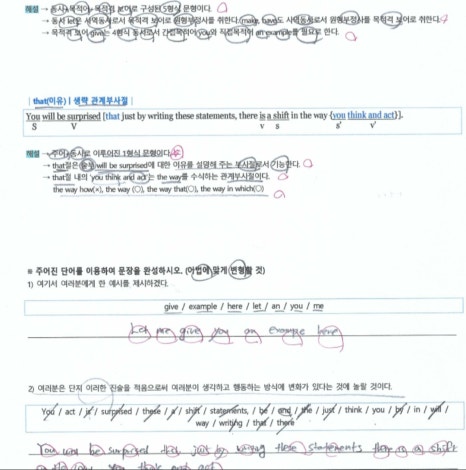 해설 → 동사+목적어+목적격 보어로 구성된 5형식 문형이다.
→ 동사 let은 사역동사로서 목적격 보어로 원형부정사를 취한다. make, have도 사역동사로서 원형부정사를 목적격 보어로 취한다.
→ 목적격 보어 give는 4형식 동사로서 간접목적어 you와 직접목적어 an example을 필요로 한다.
| that(이유) | 생략 관계부사절
You will be surprised [that just by writing these statements, there is a shift in the way {you think and act}].
S V v s s' v'
해설 → 주어+동사로 이루어진 1형식 문형이다.
→ that절은 술부 will be surprised에 대한 이유를 설명해 주는 부사절로서 기능한다.
→ that절 내의 'you think and act'는 the way를 수식하는 관계부사절이다.
the way how(×), the way (○), the way that(○), the way in which(○)
※ 주어진 단어를 이용하여 문장을 완성하시오. (어법에 맞게 변형할 것)
1) 여기서 여러분에게 한 예시를 제시하겠다.
give / example / here / let / an / you / me
Let me give you an example here
2) 여러분은 단지 이러한 진술을 적음으로써 여러분이 생각하고 행동하는 방식에 변화가 있다는 것에 놀랄 것이다.
You / act / is / surprised / these / a / shift / statements, / be / and / the / just / think / you / by / in / will /
way / writing / that / there
You will be surprised that just by writing these statements there is a shift
you think and act